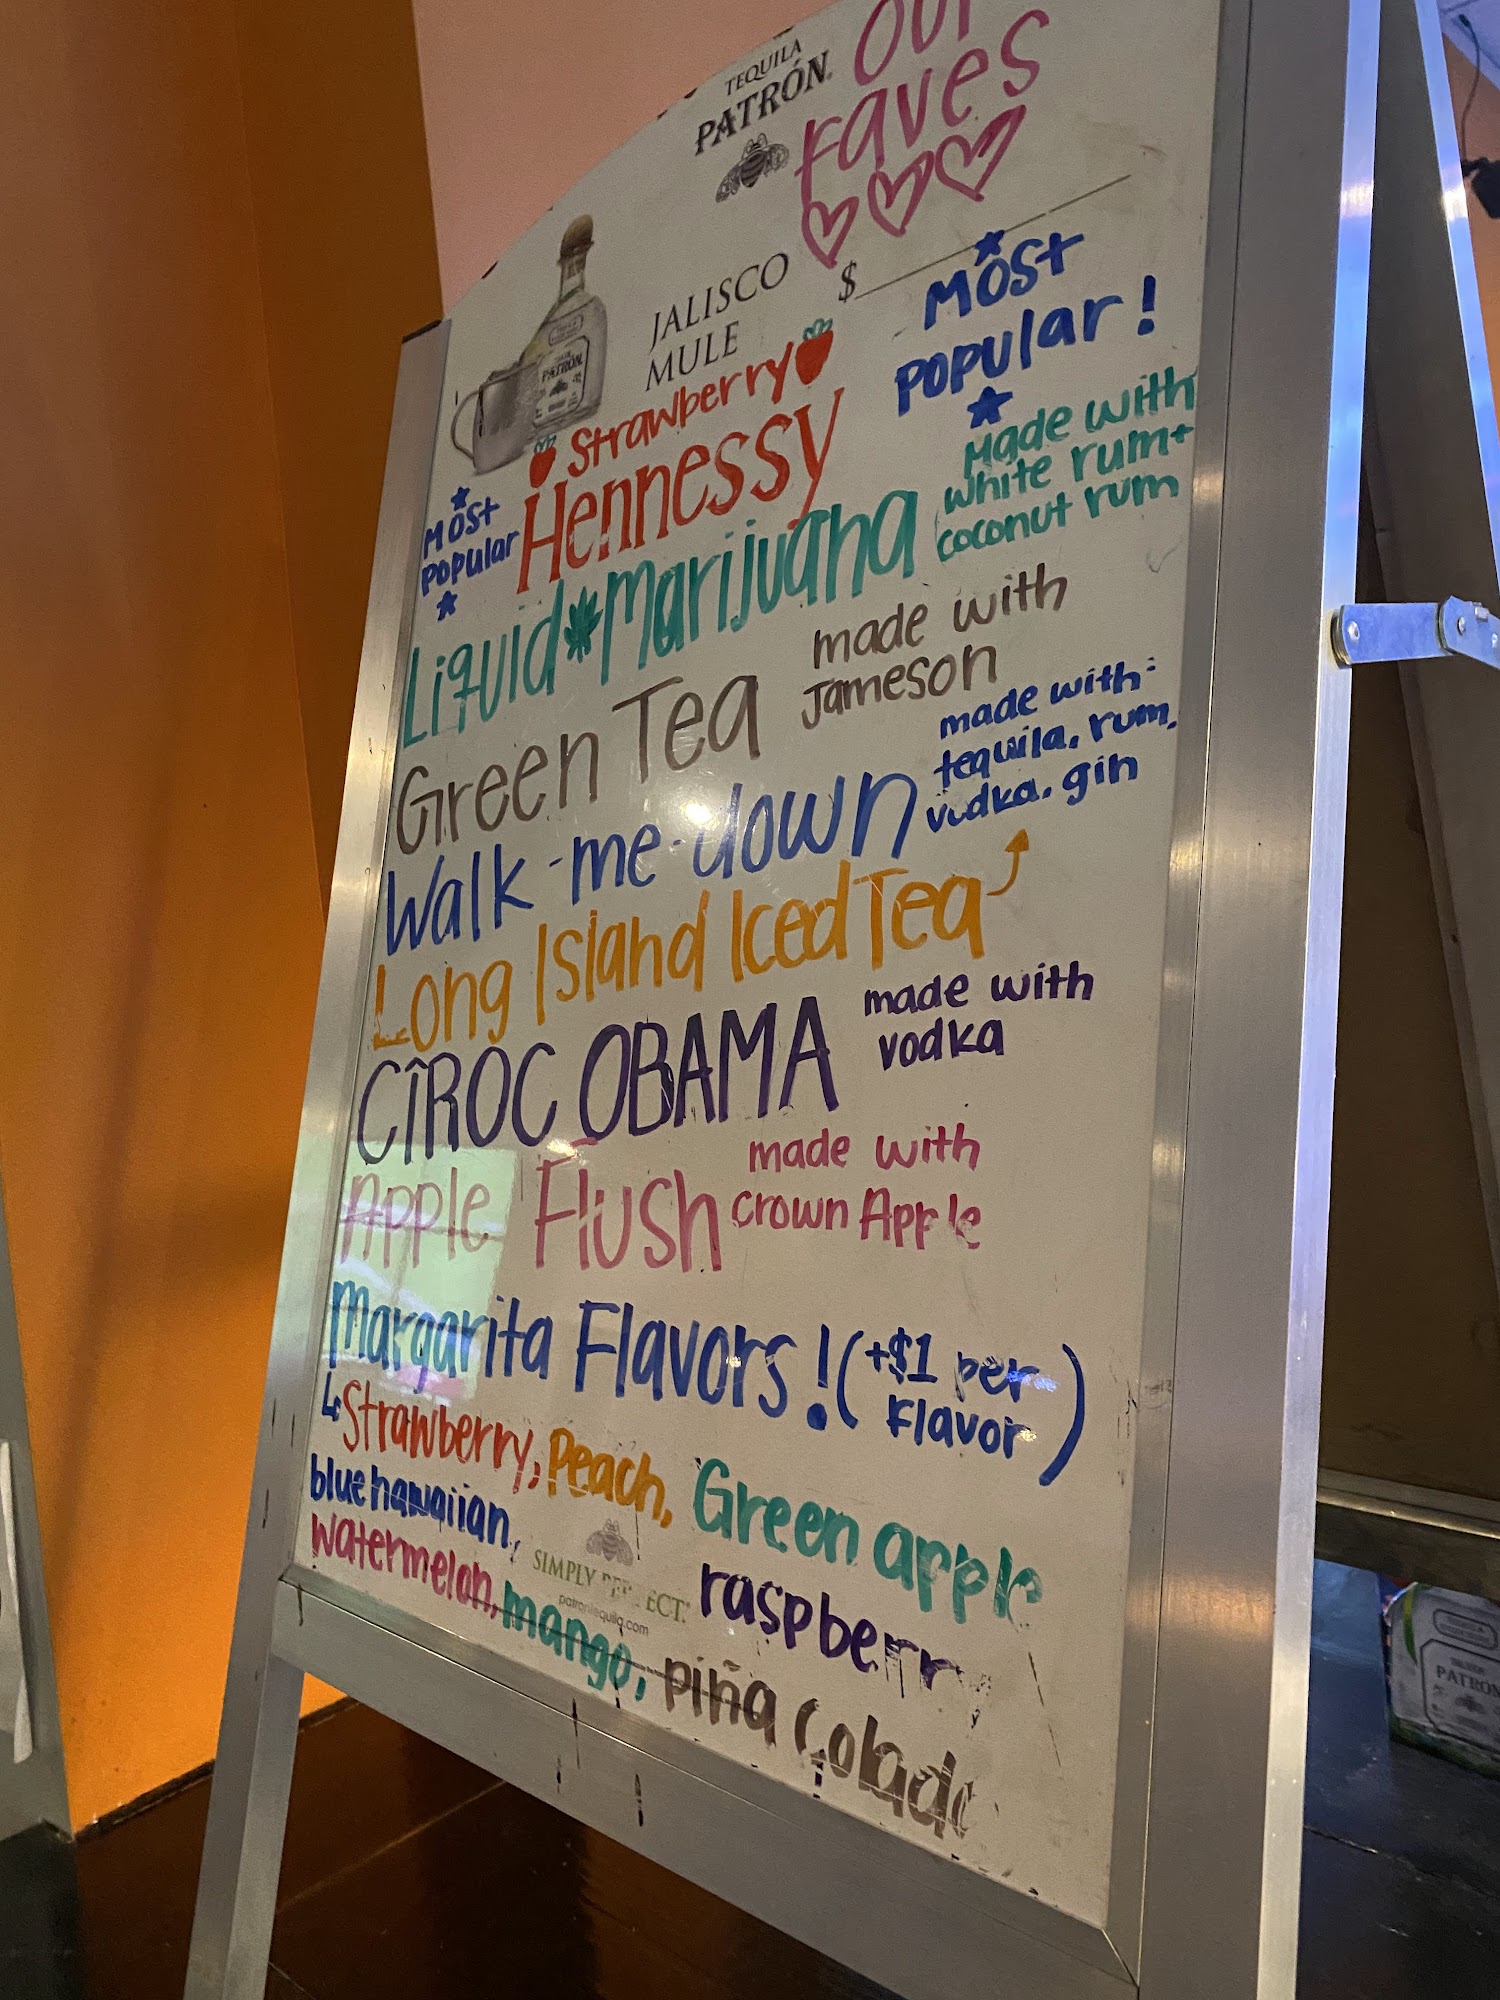 TEQUILA
PATRÓN
Our
Faves
JALISCO
MULE
$
Most
Popular!
Strawberry
Hennessy
Most
Popular
Liquid Marijuana
Made with
white rum+
coconut rum
Green Tea
made with
Jameson
Walk-me-down
made with:
tequila, rum,
vodka, gin
Long Island Iced Tea
CÎROC OBAMA
made with
vodka
Apple Flush
made with
crown Apple
Margarita Flavors! (+$1 per
Flavor)
Strawberry, Peach, Green apple
blue hawaiian, raspberry
watermelon, mango, piña colada
SIMPLY PERFECT.
patrontequila.com
PATRÓN
PATRÓN